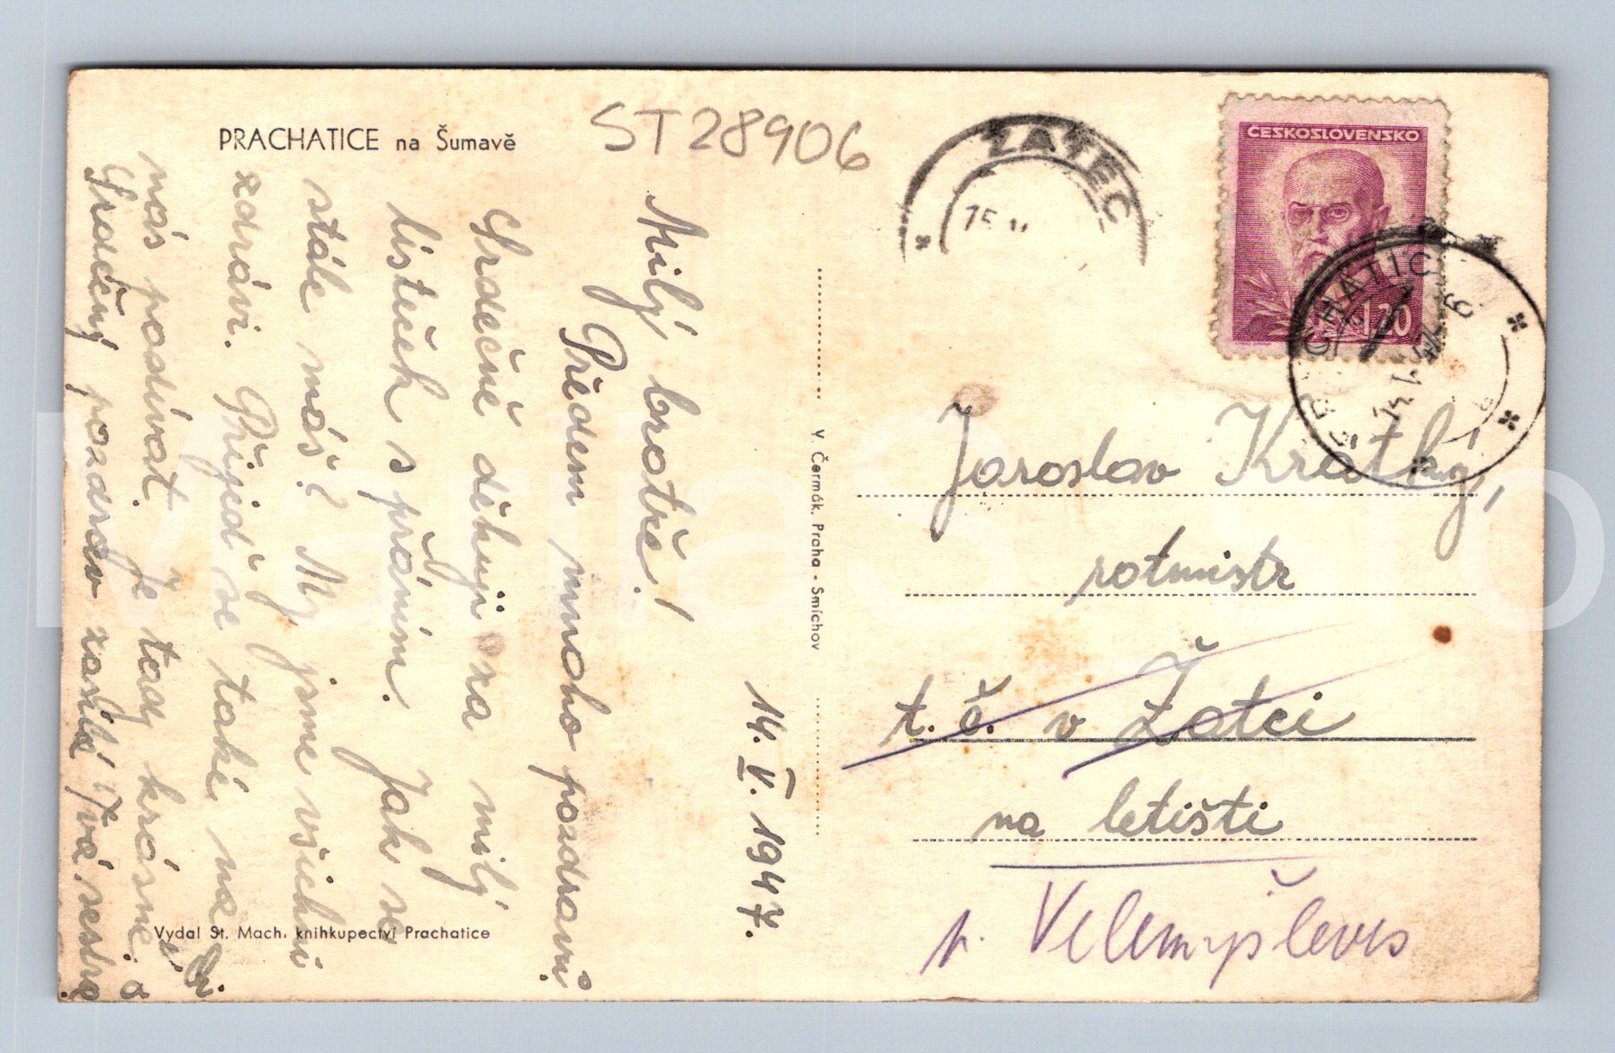 PRACHATICE na Šumavě
ST28906
ŽATEC
15. V.
ČESKOSLOVENSKO
1·20
PRACHATICE
14. V. 1947.
Milý bratře!
Předem mnoho pozdravů.
Srdečně děkuji za milý
lísteček s přáním. Jak se
stále máš? My jsme všichni
zdrávi. Přijeď se také na
nás podívat. Je tady krásně.
Srdečný pozdrav zasílá Tvá sestra
V. Čermák, Praha - Smíchov
Jaroslav Krátký,
rotmistr
t. č. v Žatci
na letišti
p. Velemyšleves
Vydal St. Mach, knihkupectví Prachatice